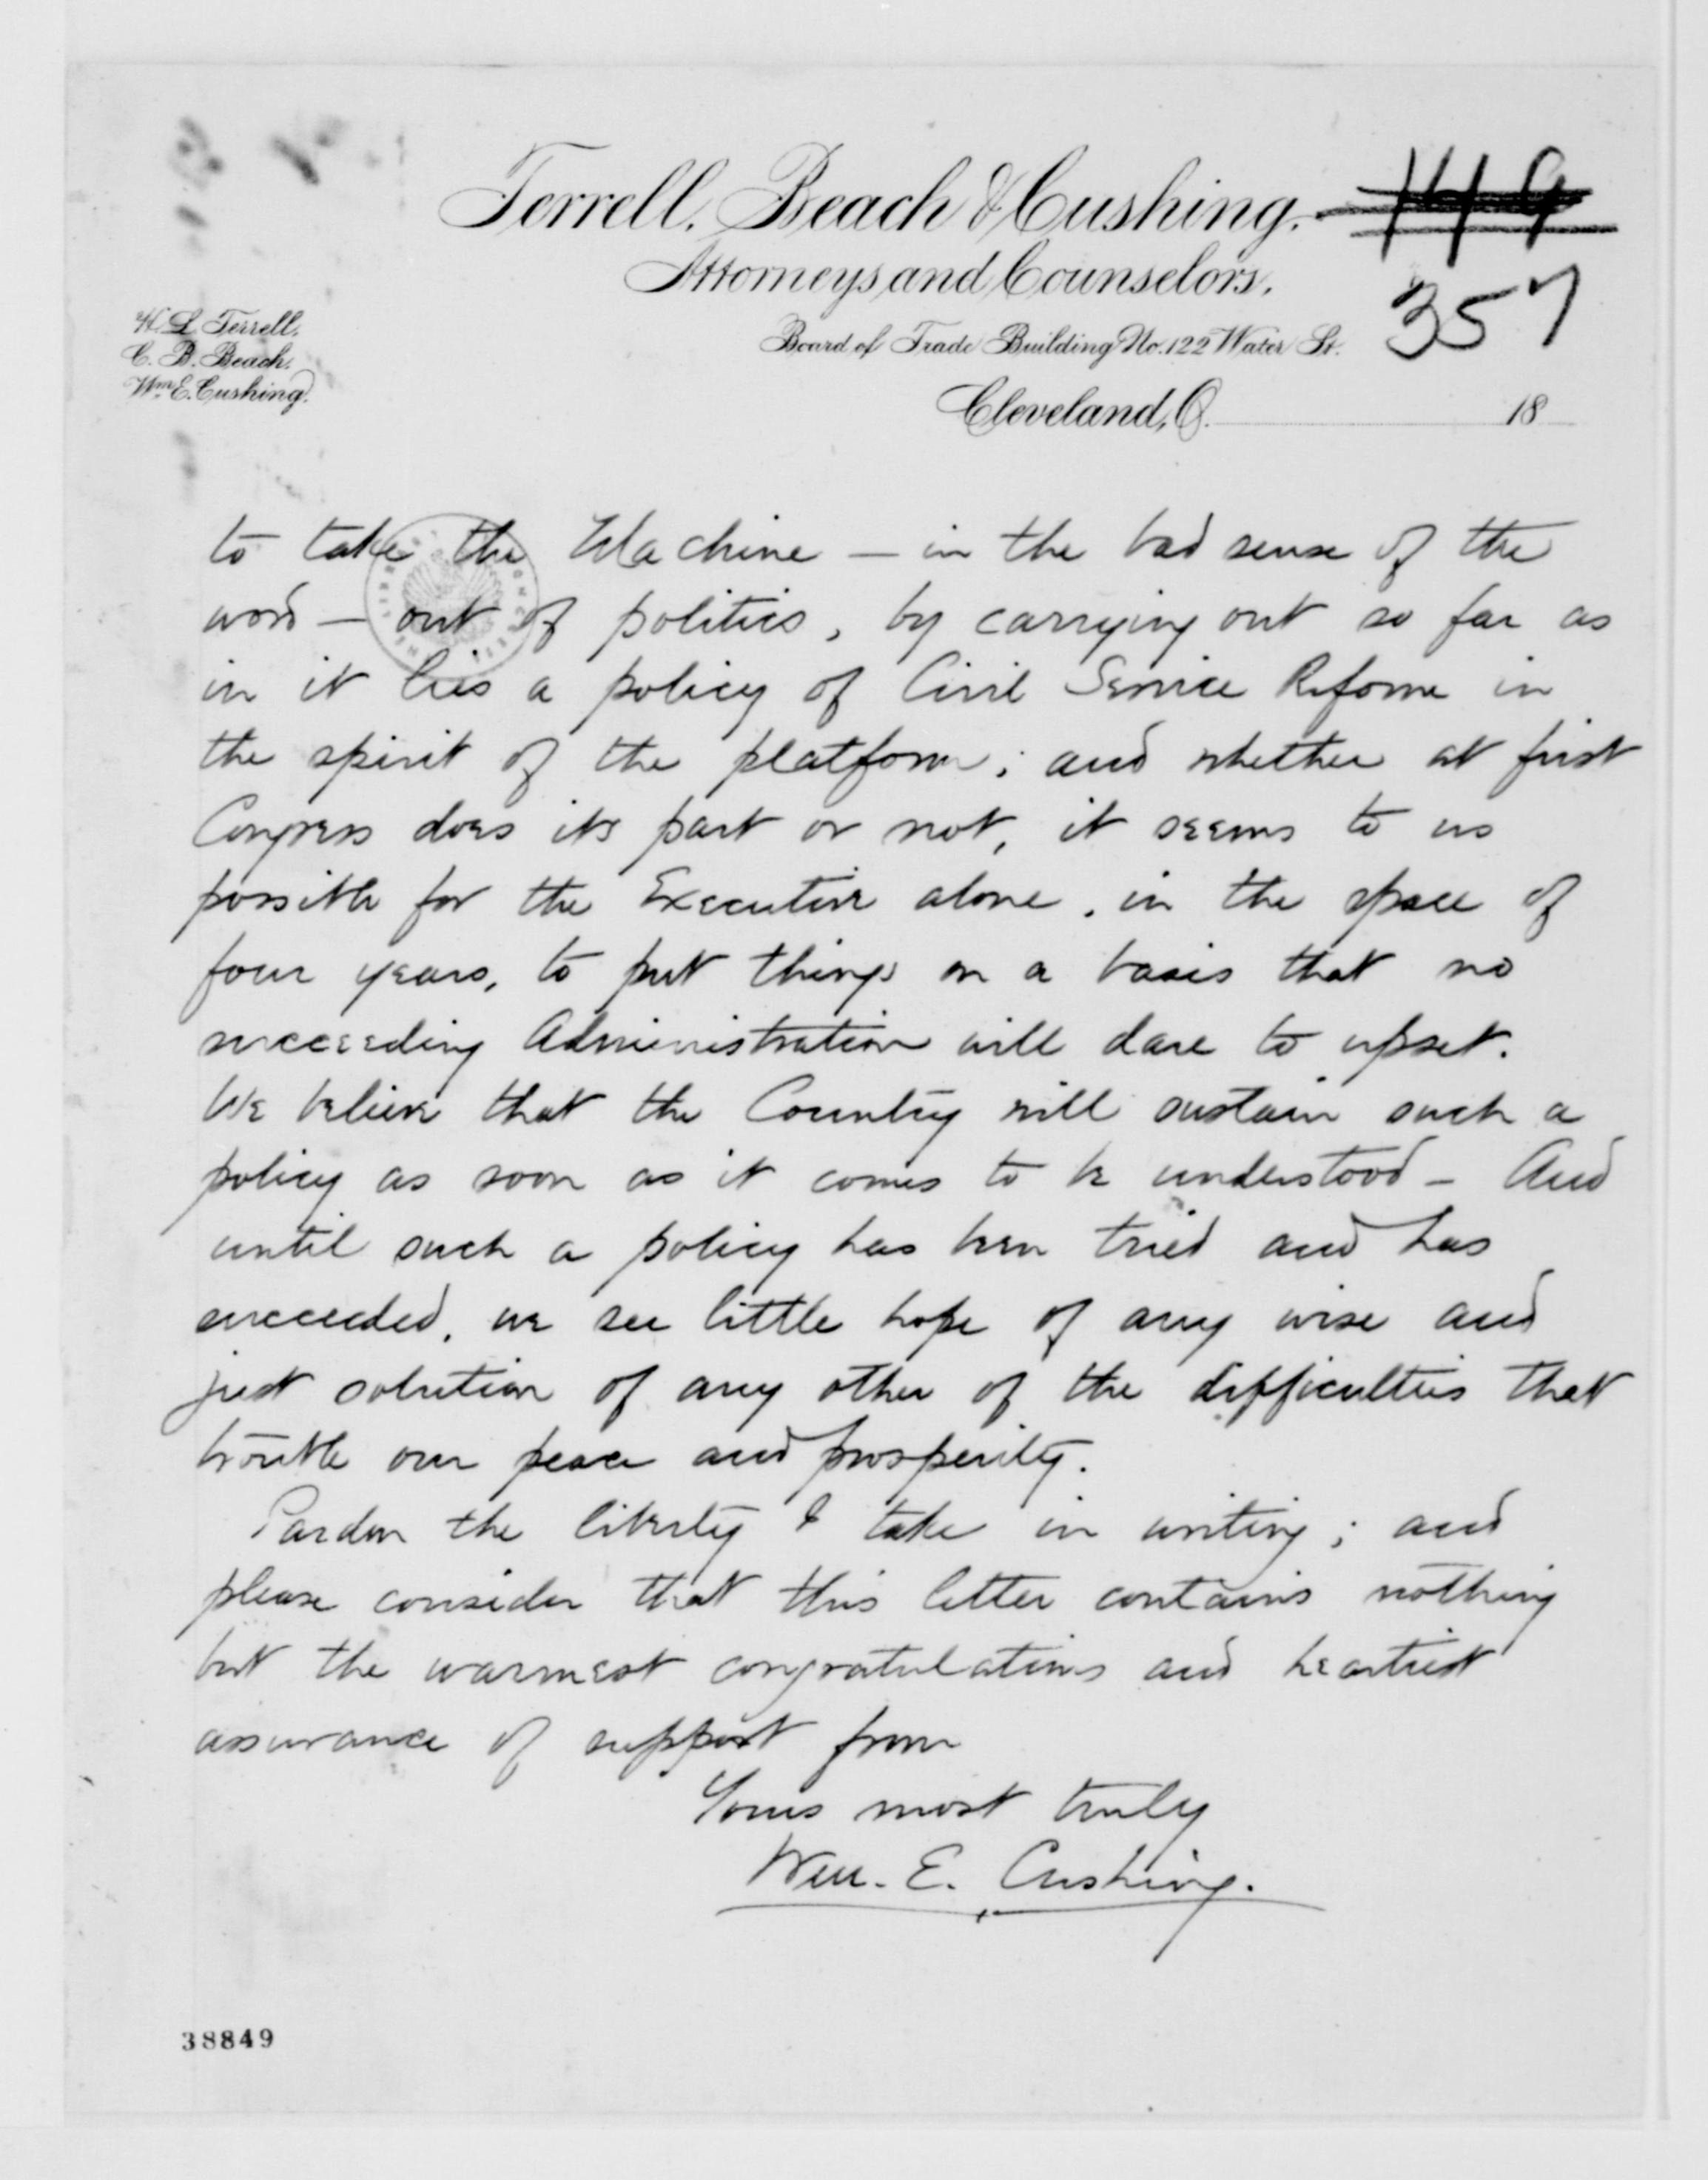 Terrell, Beach & Cushing.
149
Attorneys and Counselors,
357
Board of Trade Building No. 122 Water St.
H. L. Terrell,
C. B. Beach,
Wm E. Cushing.
Cleveland, O. 18
to take the Machine — in the bad sense of the
word — out of politics, by carrying out so far as
in it lies a policy of Civil Service Reform in
the spirit of the platform; and whether at first
Congress does its part or not, it seems to us
possible for the Executive alone, in the space of
four years, to put things on a basis that no
succeeding Administration will dare to upset.
We believe that the Country will sustain such a
policy as soon as it comes to be understood — And
until such a policy has been tried and has
succeeded, we see little hope of any wise and
just solution of any other of the difficulties that
trouble our peace and prosperity.
Pardon the liberty I take in writing; and
please consider that this letter contains nothing
but the warmest congratulations and heartiest
assurance of support from
Yours most truly
Wm. E. Cushing.
38849